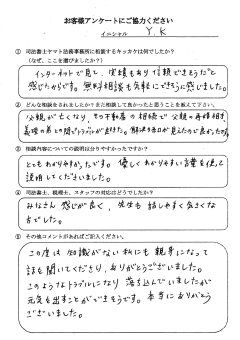 お客様アンケートにご協力ください
イニシャル Y.K
① 司法書士ヤマト法務事務所に相談するキッカケは何でしたか？
（なぜ、ここを選びましたか？）
インターネットで見て、実績もあり信頼できそうだと
感じたからです。無料相談も気軽にできそうに感じました。
② どんな相談をされましたか？また相談して良かったと思うことを教えて下さい。
父親が亡くなり、その不動産の相続で父親の再婚相手、
義理の弟との間でトラブルが出たが、解決方法が見えたので良かったです。
③ 相談内容についての説明は分りやすかったですか？
とてもわかりやすかったです。優しくわかりやすい言葉を使って
説明してくださいました。
④ 司法書士、税理士、スタッフの対応はどうでしたか？
みなさん感じが良く、先生も話しやすく気さくな
方でした。
⑤ その他コメントがあればご記入ください。
この度は知識がない私にも親身になって
話を聞いてくださり、ありがとうございました。
このようなトラブルになり落ち込んでいましたが
元気を出すことができそうです。本当にありがとう
ございました。